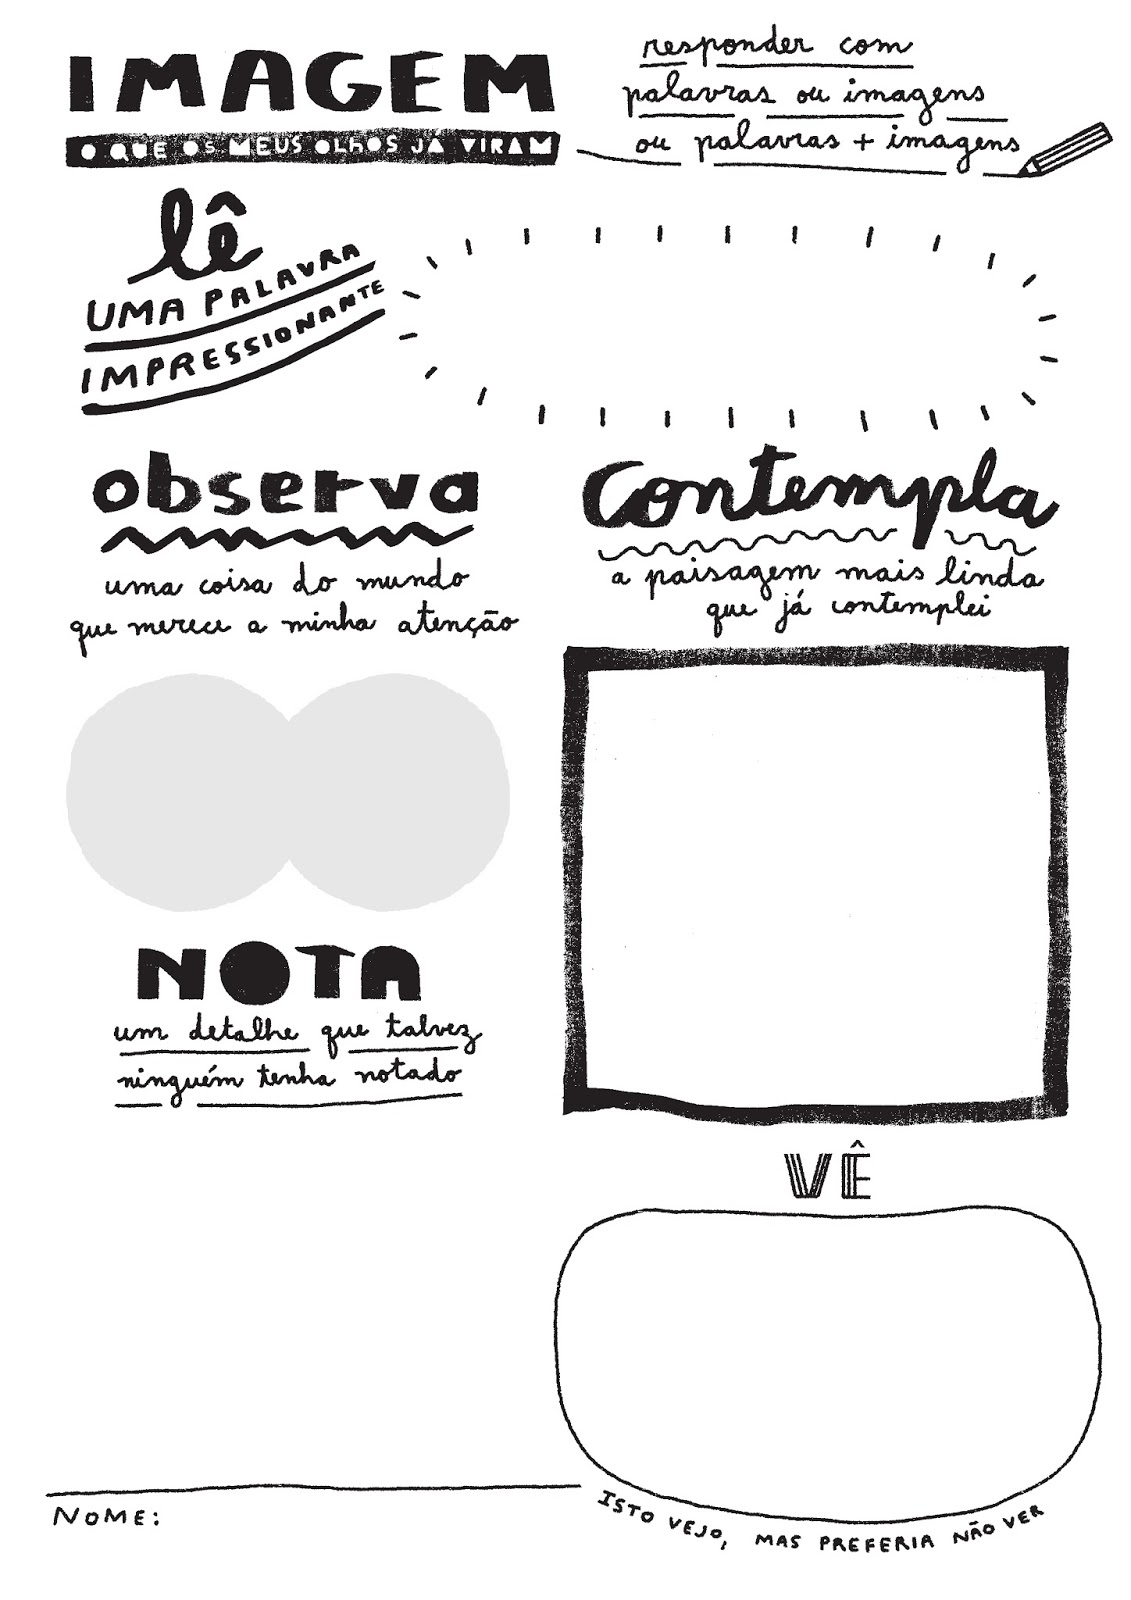 IMAGEM
O QUE OS MEUS OLhOS JÁ VIRAM
responder com
palavras ou imagens
ou palavras + imagens
lê
UMA PALAVRA
IMPRESSIONANTE
observa
uma coisa do mundo
que merece a minha atenção
Contempla
a paisagem mais linda
que já contemplei
NOTA
um detalhe que talvez
ninguém tenha notado
VÊ
ISTO VEJO, MAS PREFERIA NÃO VER
NOME: